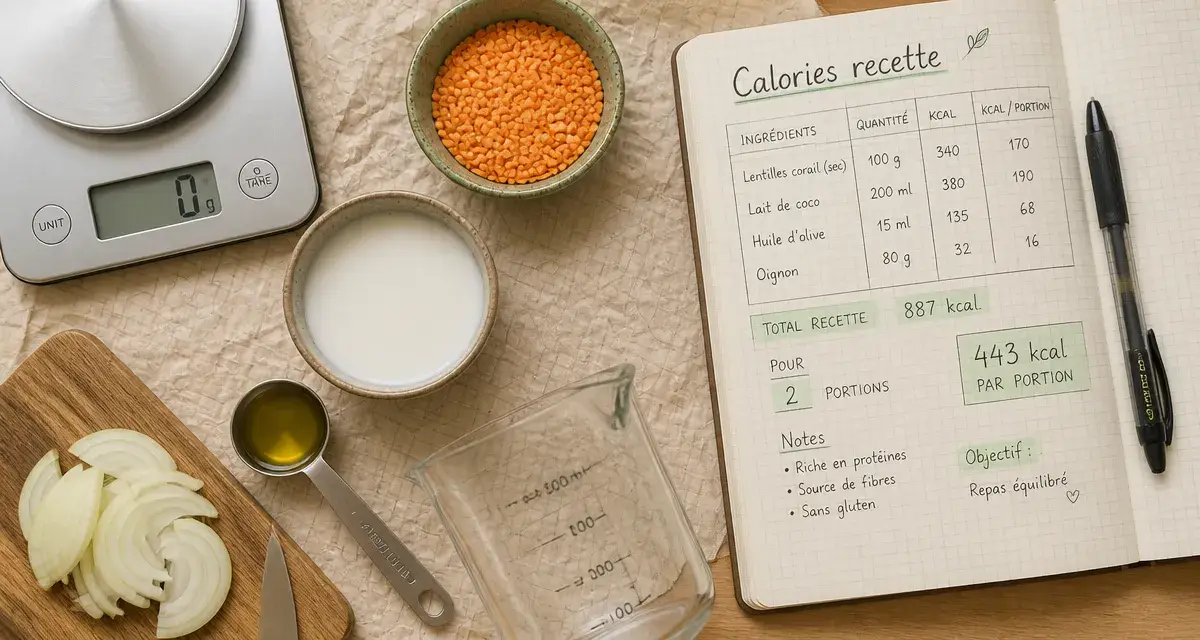 0 g
UNIT
0
TARE
Calories recette
INGRÉDIENTS QUANTITÉ KCAL KCAL / PORTION
Lentilles corail (sec) 100 g 340 170
Lait de coco 200 ml 380 190
Huile d'olive 15 ml 135 68
Oignon 80 g 32 16
TOTAL RECETTE 887 kcal.
POUR
2 PORTIONS
443 kcal
PAR PORTION
Notes
• Riche en protéines
• Source de fibres
• Sans gluten
Objectif :
Repas équilibré